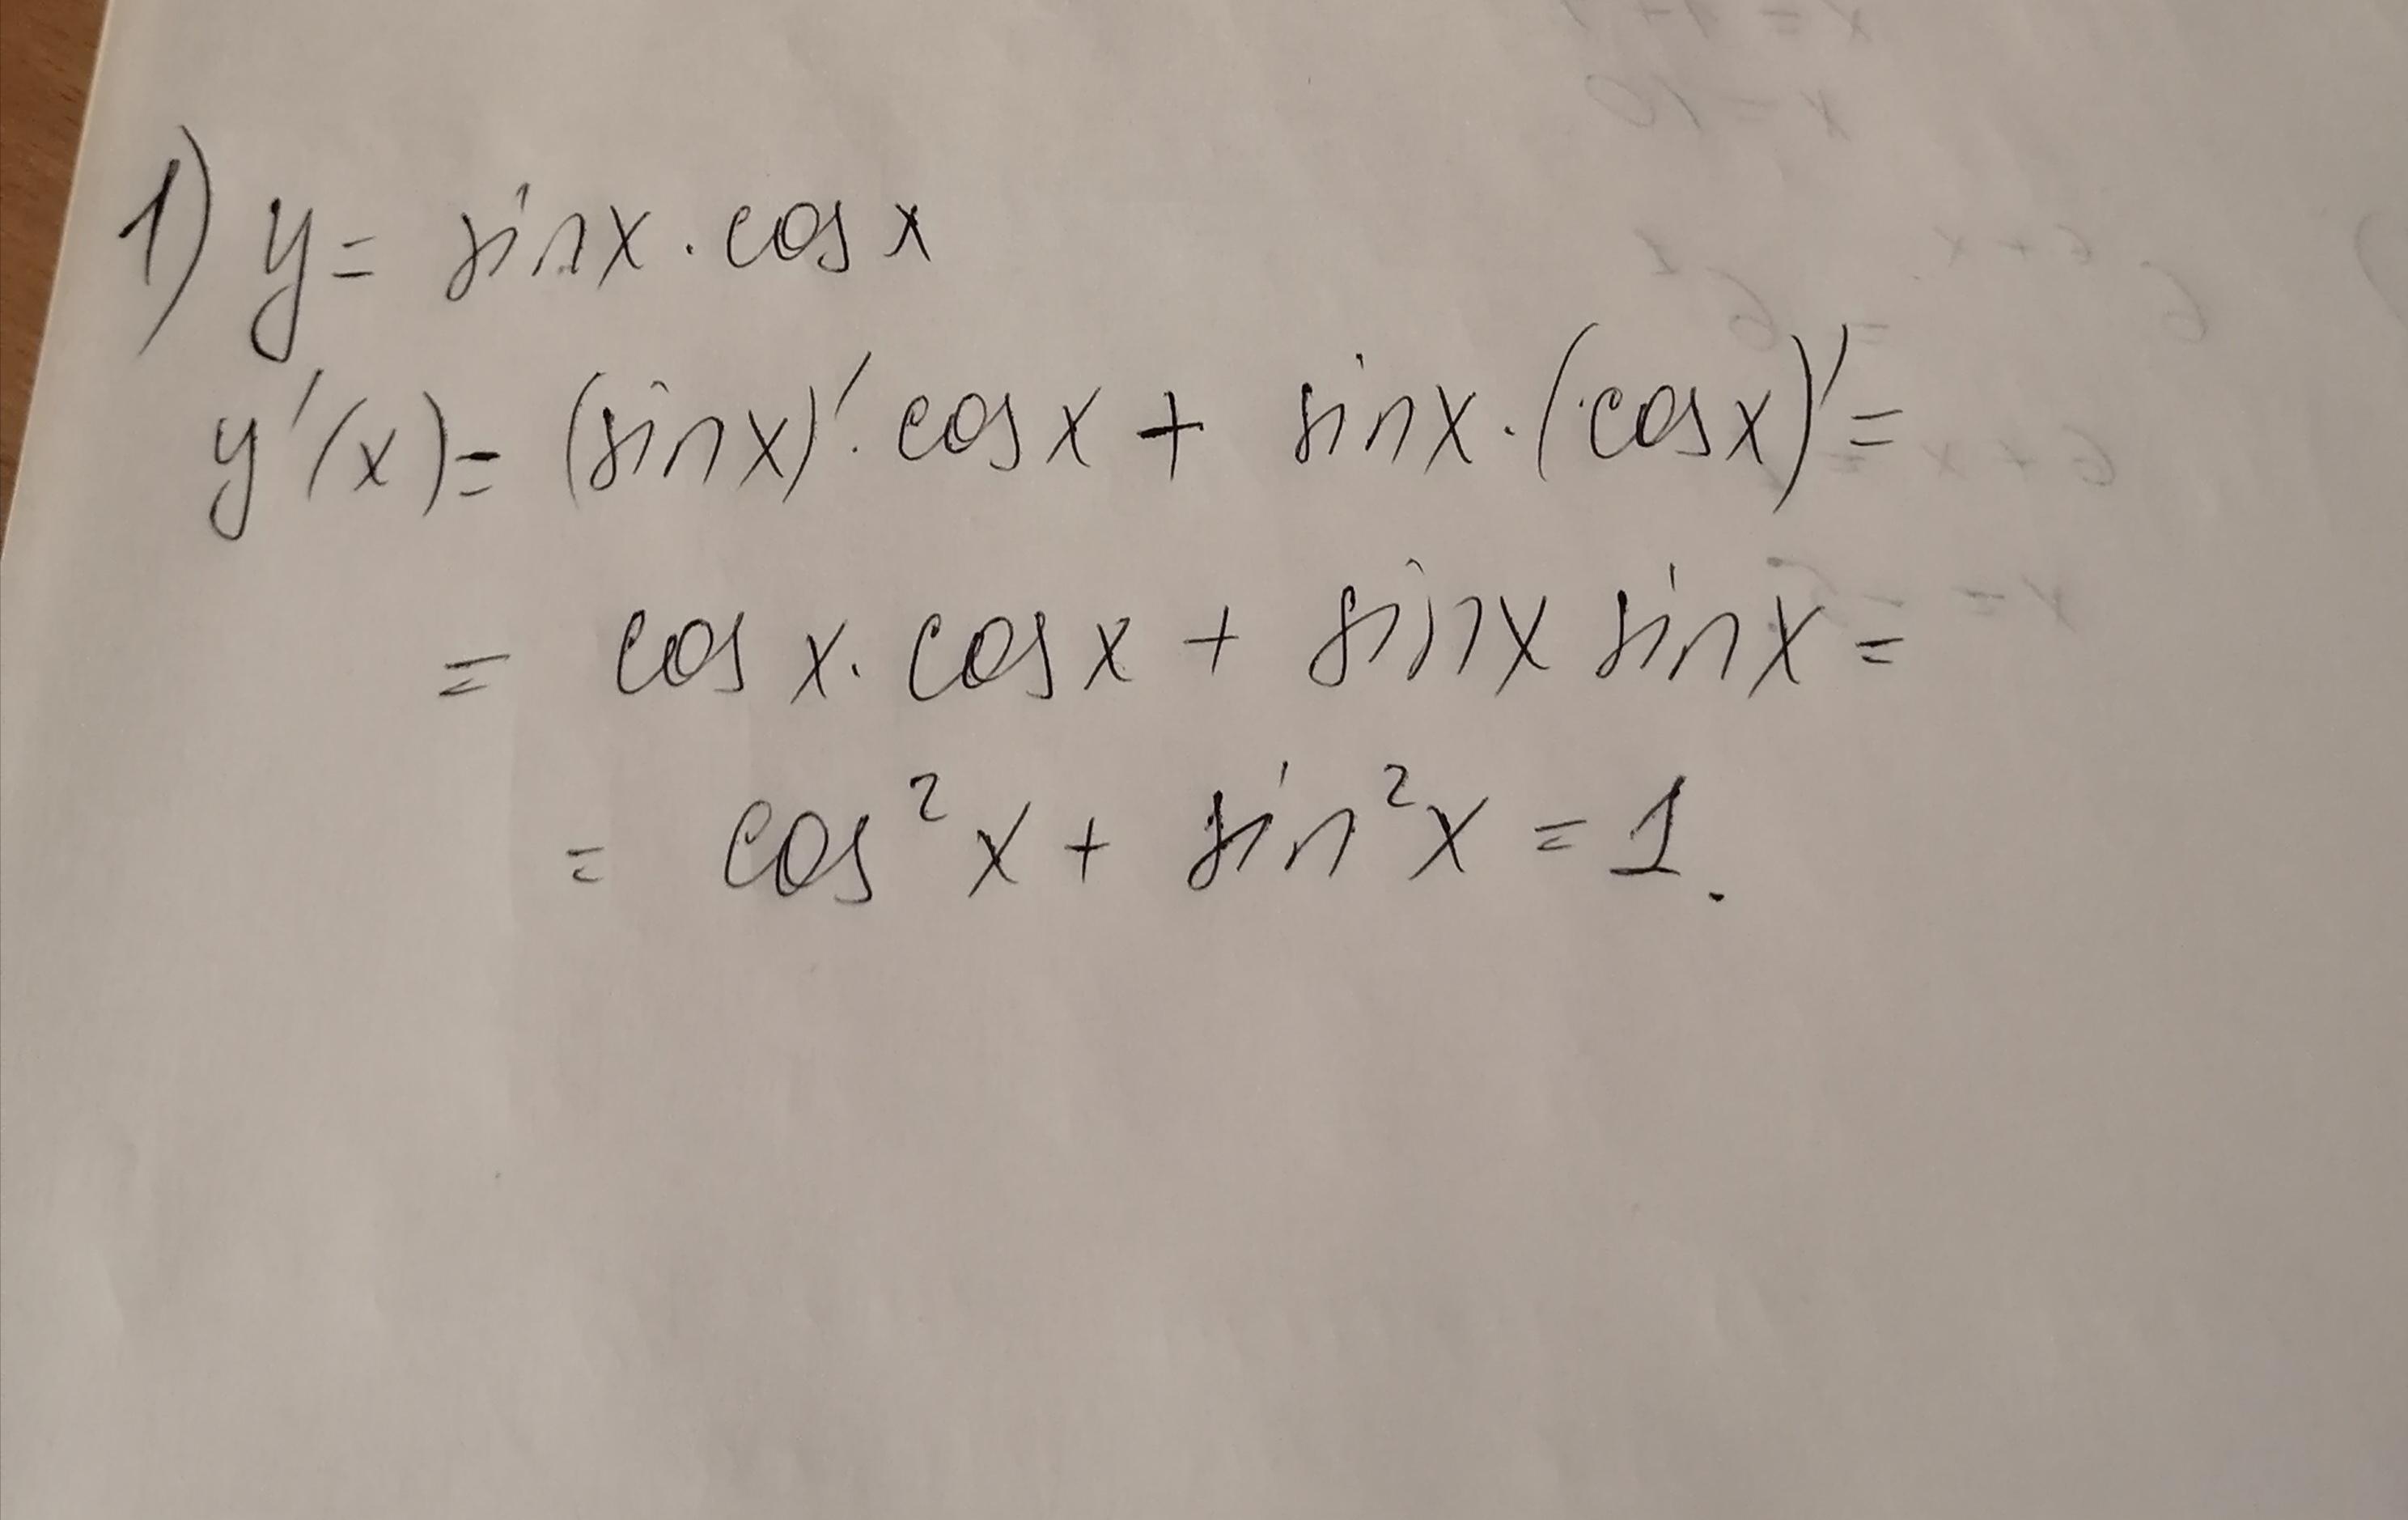 1) y = sin x · cos x
y'(x) = (sin x)' · cos x + sin x · (cos x)' =
= cos x · cos x + sin x sin x =
= cos² x + sin² x = 1.